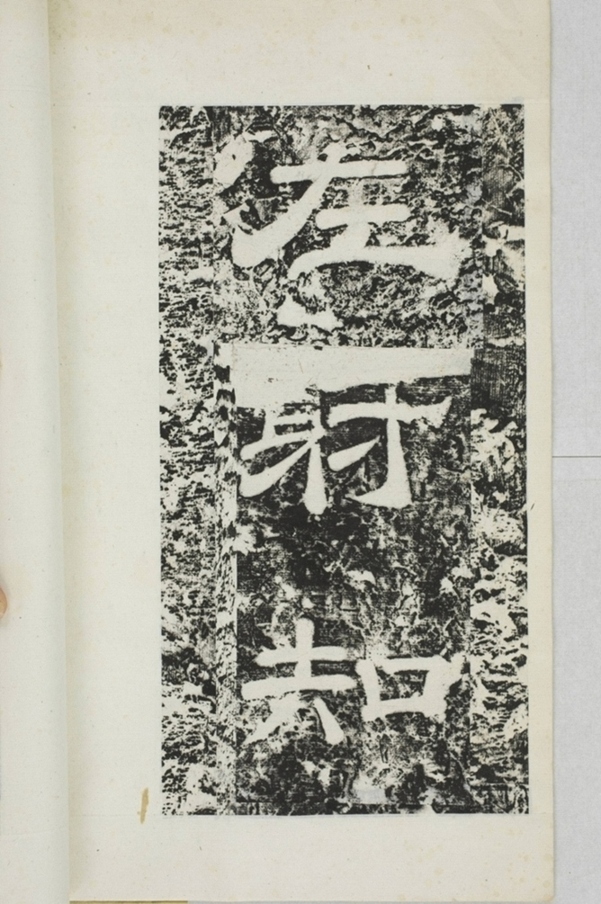 左
射
知